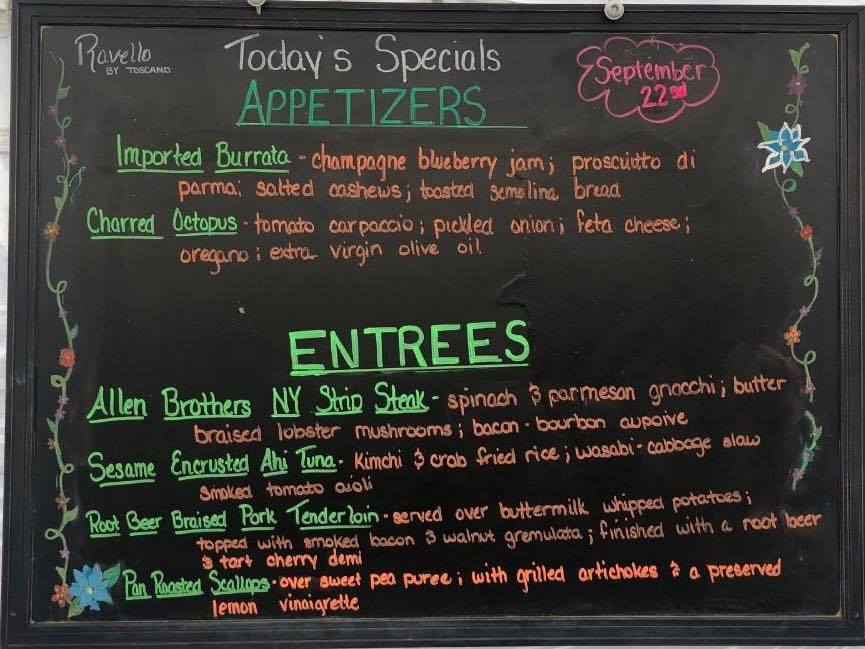 Ravello
BY TOSCANO
Today's Specials
September
22nd
APPETIZERS
Imported Burrata - champagne blueberry jam; prosciutto di
parma; salted cashews; toasted semolina bread
Charred Octopus - tomato carpaccio; pickled onion; feta cheese;
oregano; extra virgin olive oil
ENTREES
Allen Brothers NY Strip Steak - spinach & parmesan gnocchi; butter
braised lobster mushrooms; bacon-bourbon aupoive
Sesame Encrusted Ahi Tuna - Kimchi & crab fried rice; wasabi-cabbage slaw
smoked tomato aioli
Root Beer Braised Pork Tenderloin - served over buttermilk whipped potatoes;
topped with smoked bacon & walnut gremulata; finished with a root beer
& tart cherry demi
Pan Roasted Scallops - over sweet pea puree; with grilled artichokes & a preserved
lemon vinaigrette